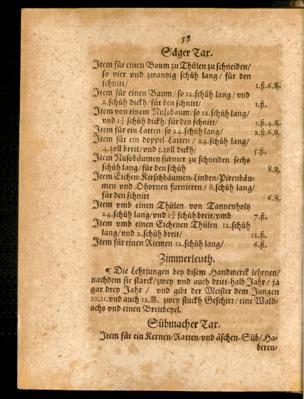 58
Säger Tax.
Item für einen Baum zu Thülen zu schneiden/
so vier und zwantzig schüh lang/ für den
schnitt/ 1.ß.6.
Item für einen Baum/ so 12.schüh lang/ und
2.schüh dickh/ für den schnitt/ 1.ß.
Item von einem Nußbaum/ so 12.schüh lang/
und schüh dickh/ für den schnitt/ 2.ß.6.
Item für ein Latten/ so 24.schüh lang/ 6.
Item für ein doppel-Latten/ 24.schüh lang/
4.zoll breit/ und 3.zoll dickh/ 5.ß.
Item Nußbäumen furnier zu schneiden sechs
schüh lang/ für den schüh 8.
Item Eichen-Kirschbäumen-Linden-Pirenbäu-
men und Ohornen furnieren/ 8.schüh lang/
für den schnitt 8.
Item vmb einen Thülen von Tannenholtz
24.schüh lang/ vnd schüh breit/ vmb 7.ß.
Item vmb einen Eichenen Thülen 12.schüh
lang/ vnd 2.schüh breit/ 12.ß.
Item für einen Riemen 12.schüh lang/ 6.ß.
Zimmerleuth.
¶ Die Lehrjungen bey disem Handwerck lehrnen/
nachdem sie starck/ zwey und auch dritt-halb Jahr/ ja
gar drey Jahr/ und gibt der Meister dem Jungen
10.11.vnd auch 12. zwey stuckh Geschirr/ eine Wald-
achs vnd einen Breitbeyel.
Sübmacher Tax.
Item für ein Kernen-Ratten/ vnd äschen-Süb/ Ha-
beren-